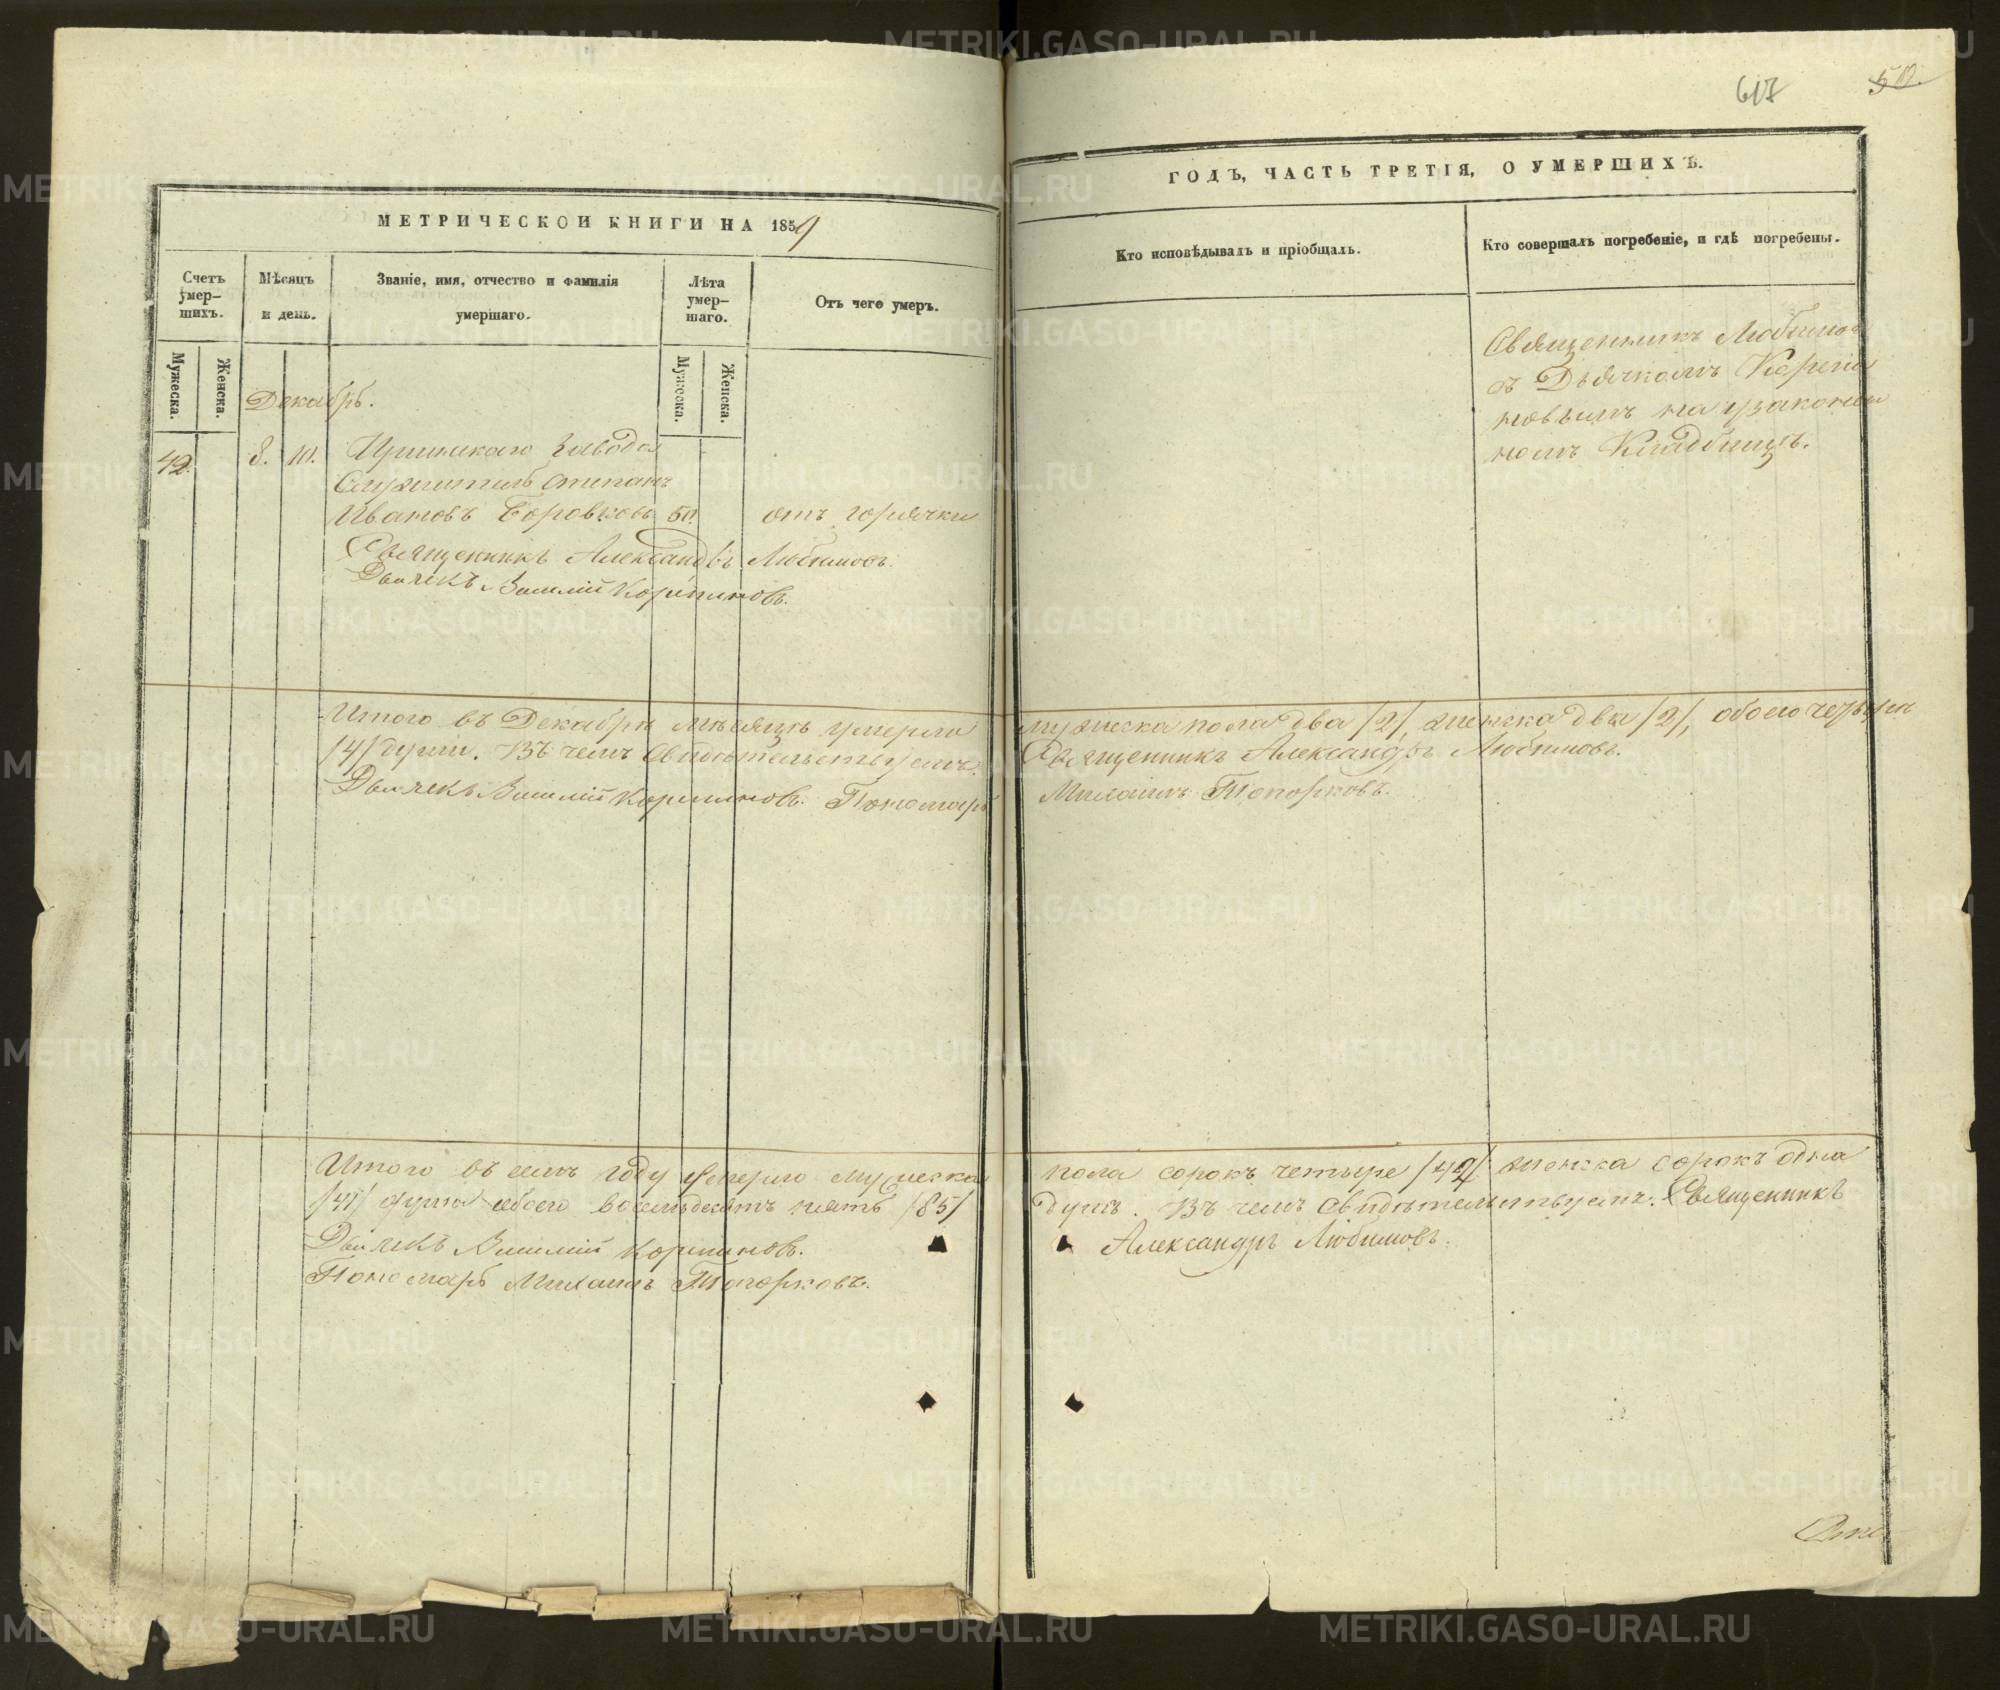 МЕТРИЧЕСКОИ КНИГИ НА 1859
Счетъ умер-шихъ.
Мѣсяцъ и день.
Званіе, имя, отчество и фамилія умершаго.
Лѣта умер-шаго.
Отъ чего умеръ.
Мужеска.
Женска.
Мужеска.
Женска.
Декабрь.
42. 8. 10. Иргинскаго завода
Служитель Степанъ
Ивановъ Боровковъ 50. отъ горячки
Священникъ Александръ Любимовъ.
Дьячекъ Василій
Итого въ Декабрѣ мѣсяцѣ умерли
/4/ души. Въ чемъ свидѣтельствуемъ:
Дьячекъ Василій Пономарь
Итого въ семъ году умерло мужеска
/41/ душа обоего восемьдесятъ пять /85/
Дьячекъ Василій
Пономарь Михаилъ Топорковъ.
617 50.
ГОДЪ, ЧАСТЬ ТРЕТІЯ, О УМЕРШИХЪ.
Кто исповѣдывалъ и пріобщалъ.
Кто совершалъ погребеніе, и гдѣ погребены.
Священникъ Любимовъ
съ Дьячкомъ
на узаконен
номъ Кладбищѣ.
мужеска пола два /2/, женска двѣ /2/, обоего четыре
Священникъ Александръ Любимовъ.
Михаилъ Топорковъ.
пола сорокъ четыре женска сорокъ одна
душъ. Въ чемъ свидѣтельствуемъ: Священникъ
Александръ Любимовъ.
METRIKI.GASO-URAL.RU